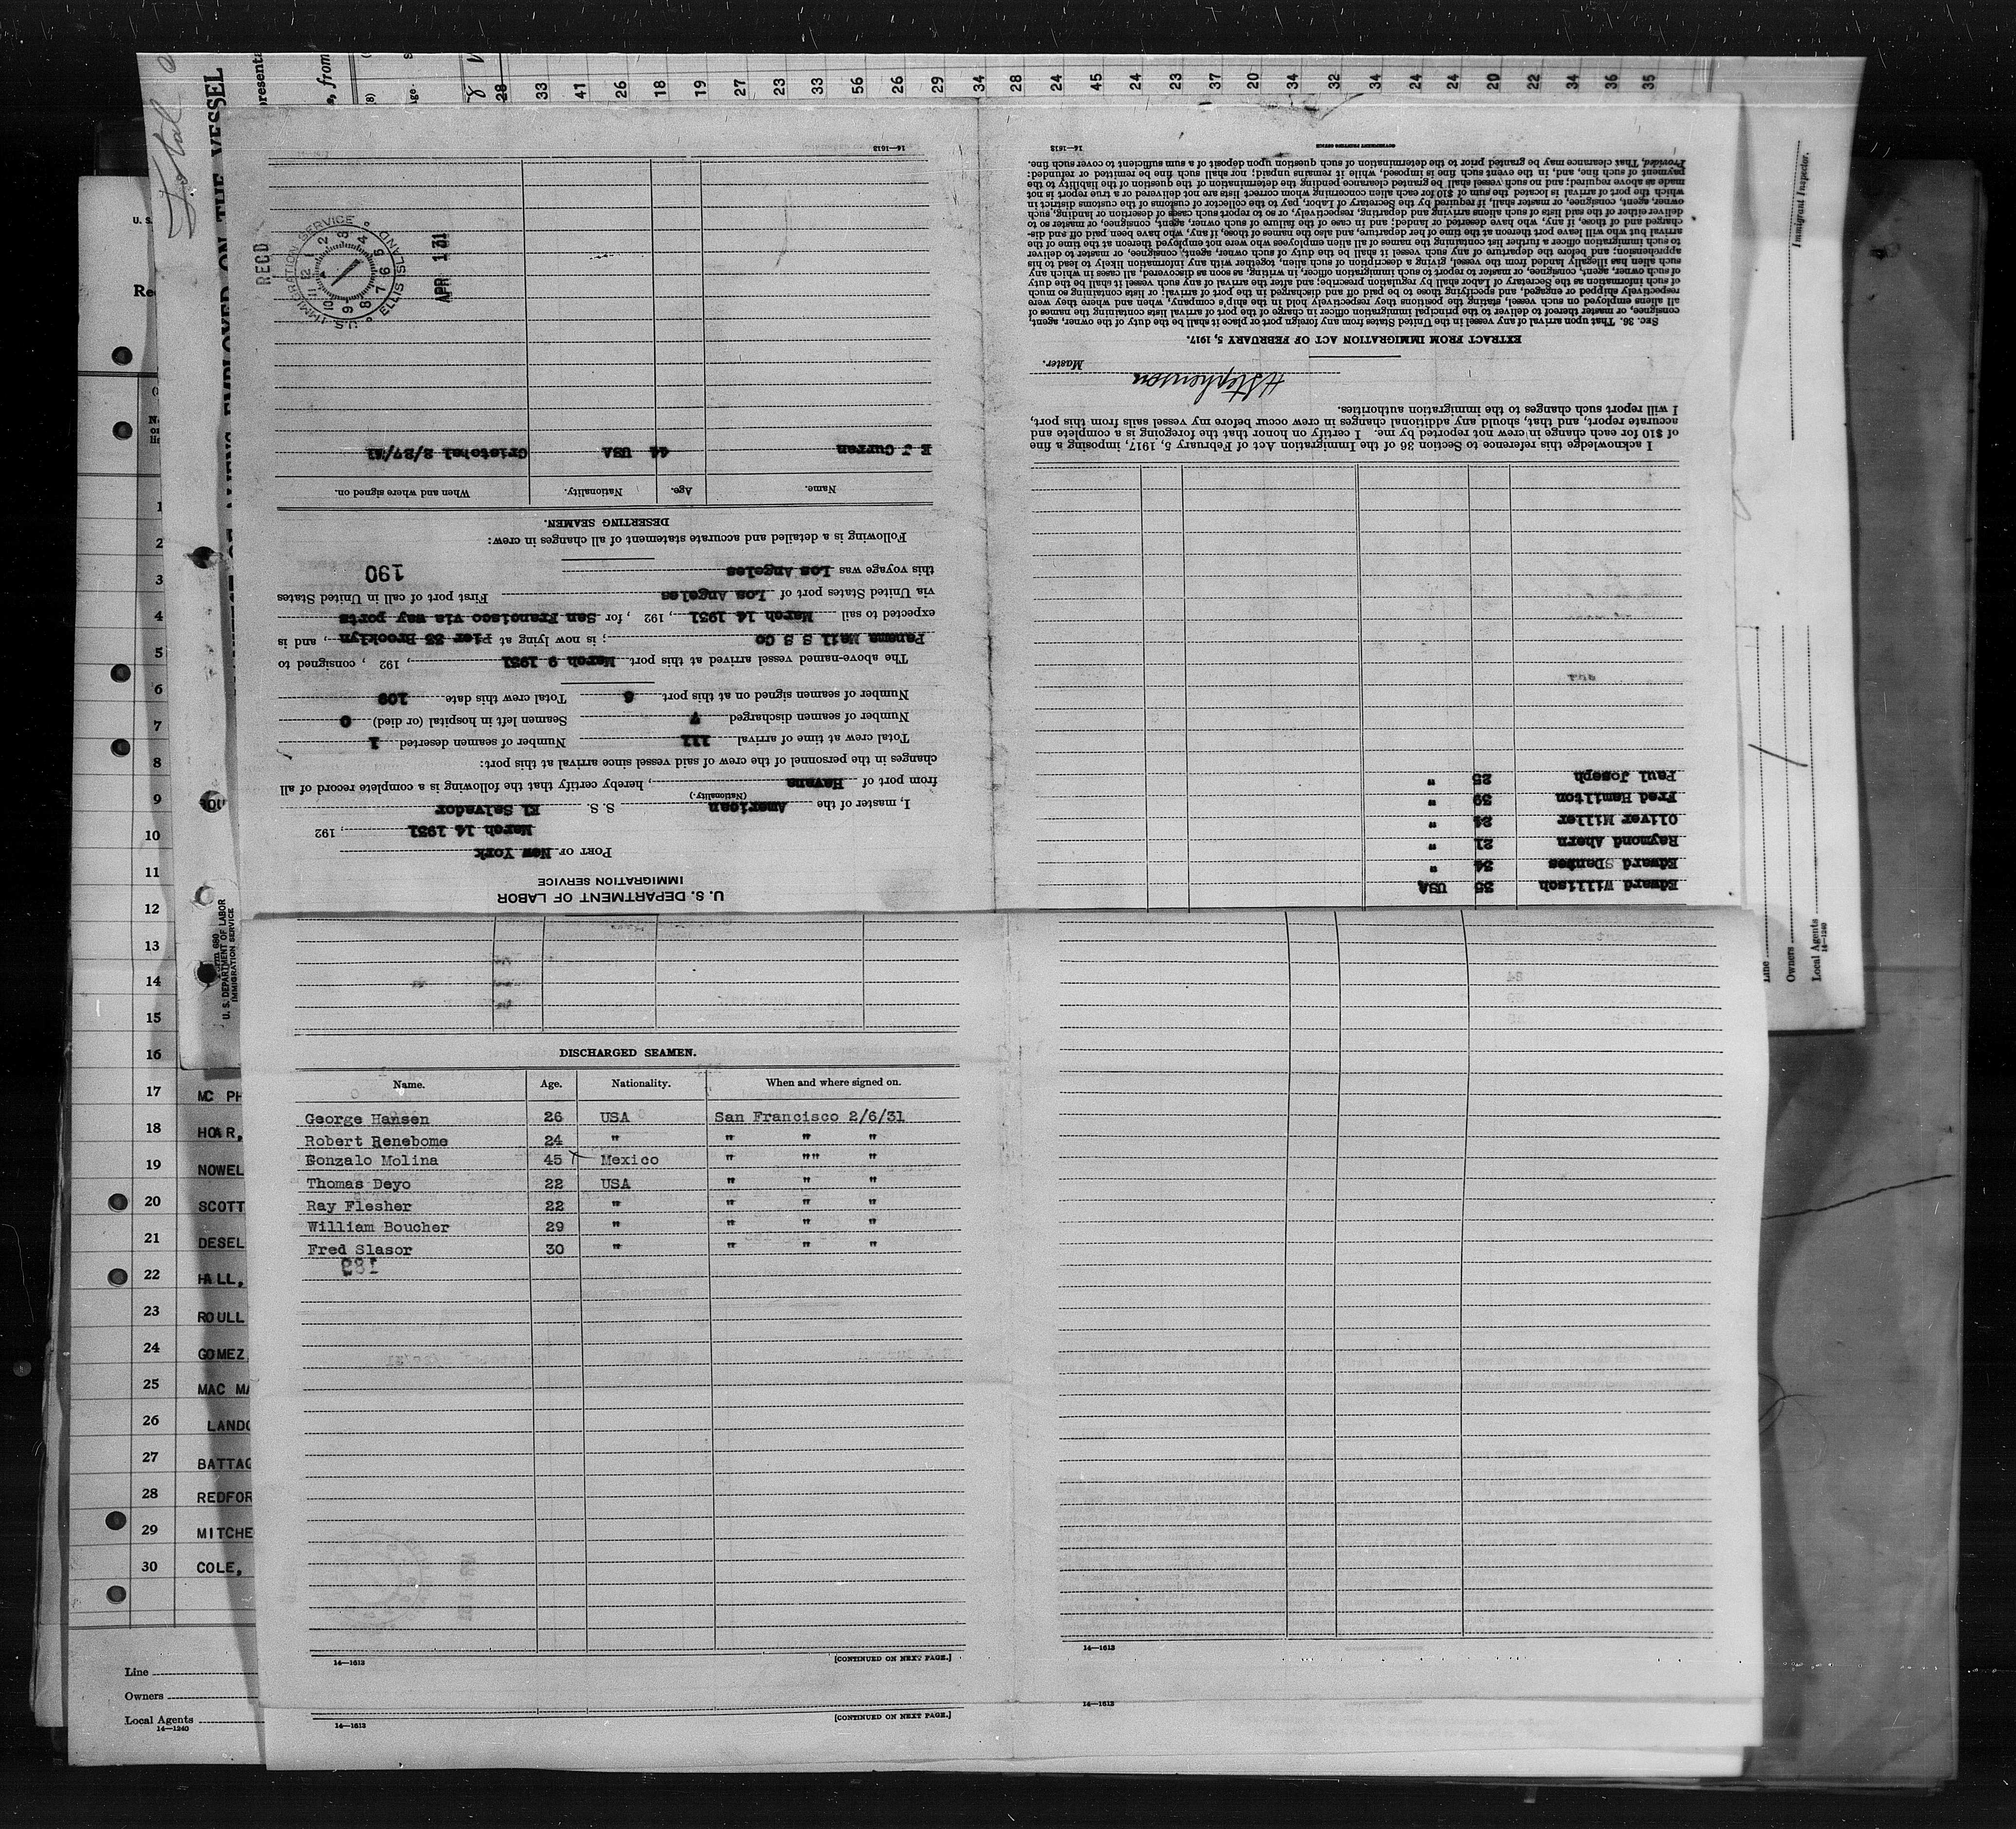 Total
ALIENS EMPLOYED ON THE VESSEL
28 33 41 26 18 19 27 23 33 56 26 29 34 28 24 45 24 23 37 20 34 32 34 24 24 20 22 34 36 35
Immigrant Inspector.
U. S. DEPARTMENT OF LABOR
IMMIGRATION SERVICE
PORT OF New York
March 14 1931, 192
I, master of the American S. S. El Salvador
(Nationality.)
from port of Havana, hereby certify that the following is a complete record of all
changes in the personnel of the crew of said vessel since arrival at this port:
Total crew at time of arrival 111 Number of seamen deserted 1
Number of seamen discharged 7 Seamen left in hospital (or died) 0
Number of seamen signed on at this port 6 Total crew this date 109
The above-named vessel arrived at this port March 9 1931, 192 , consigned to
Panama Mail S S Co; is now lying at Pier 33 Brooklyn, and is
expected to sail March 14 1931, 192 , for San Francisco via way ports
via United States port of Los Angeles First port of call in United States
this voyage was Los Angeles
190
Following is a detailed and accurate statement of all changes in crew:
DESERTING SEAMEN.
Name. Age. Nationality. When and where signed on.
E J Curran 44 USA Cristobal 2/27/31
RECD
U.S. IMMIGRATION SERVICE
ELLIS ISLAND
APR 1 31
14—1613
Edward Willison 35 USA
Edward SDantes 34 "
Raymond Ahern 21 "
Oliver Miller 24 "
Fred Hamilton 39 "
Paul Joseph 25 "
I acknowledge this reference to Section 36 of the Immigration Act of February 5, 1917, imposing a fine
of $10 for each change in crew not reported by me. I certify on honor that the foregoing is a complete and
accurate report, and that, should any additional changes in crew occur before my vessel sails from this port,
I will report such changes to the immigration authorities.
H Stephenson
Master.
EXTRACT FROM IMMIGRATION ACT OF FEBRUARY 5, 1917.
SEC. 36. That upon arrival of any vessel in the United States from any foreign port or place it shall be the duty of the owner, agent,
consignee, or master thereof to deliver to the principal immigration officer in charge of the port of arrival lists containing the names of
all aliens employed on such vessel, stating the positions they respectively hold in the ship's company, when and where they were
respectively shipped or engaged, and specifying those to be paid off and discharged in the port of arrival; or lists containing so much
of such information as the Secretary of Labor shall by regulation prescribe; and after the arrival of any such vessel it shall be the duty
of such owner, agent, consignee, or master to report to such immigration officer, in writing, as soon as discovered, all cases in which any
such alien has illegally landed from the vessel, giving a description of such alien, together with any information likely to lead to his
apprehension; and before the departure of any such vessel it shall be the duty of such owner, agent, consignee, or master to deliver
to such immigration officer a further list containing the names of all alien employees who were not employed thereon at the time of the
arrival but who will leave port thereon at the time of her departure, and also the names of those, if any, who have been paid off and dis-
charged and of those, if any, who have deserted or landed; and in case of the failure of such owner, agent, consignee, or master so to
deliver either of the said lists of such aliens arriving and departing, respectively, or so to report such cases of desertion or landing, such
owner, agent, consignee, or master shall, if required by the Secretary of Labor, pay to the collector of customs of the customs district in
which the port of arrival is located the sum of $10 for each alien concerning whom correct lists are not delivered or a true report is not
made as above required; and no such vessel shall be granted clearance pending the determination of the question of the liability to the
payment of such fine, and, in the event such fine is imposed, while it remains unpaid; nor shall such fine be remitted or refunded:
Provided, That clearance may be granted prior to the determination of such question upon deposit of a sum sufficient to cover such fine.
14—1613 GOVERNMENT PRINTING OFFICE
DISCHARGED SEAMEN.
Name. Age. Nationality. When and where signed on.
George Hansen 26 USA San Francisco 2/6/31
Robert Renebome 24 " " " "
Gonzalo Molina 45 Mexico " "" "
Thomas Deyo 22 USA " " "
Ray Flesher 22 " " " "
William Boucher 29 " " " "
Fred Slasor 30 " " " "
14—1613 [CONTINUED ON NEXT PAGE.]
14—1613
14—1613 [CONTINUED ON NEXT PAGE.]
14—1613
1
2
3
4
5
6
7
8
9
10
11
12
13
14
15
16
17 MC PH
18 HOAR,
19 NOWEL
20 SCOTT
21 DESEL
22 HALL,
23 ROULL
24 GOMEZ
25 MAC MA
26 LANDO
27 BATTAG
28 REDFOR
29 MITCHE
30 COLE,
Line
Owners
Local Agents
14—1240
Form 680
U. S. DEPARTMENT OF LABOR
IMMIGRATION SERVICE
Line
Owners
Local Agents
14—1240